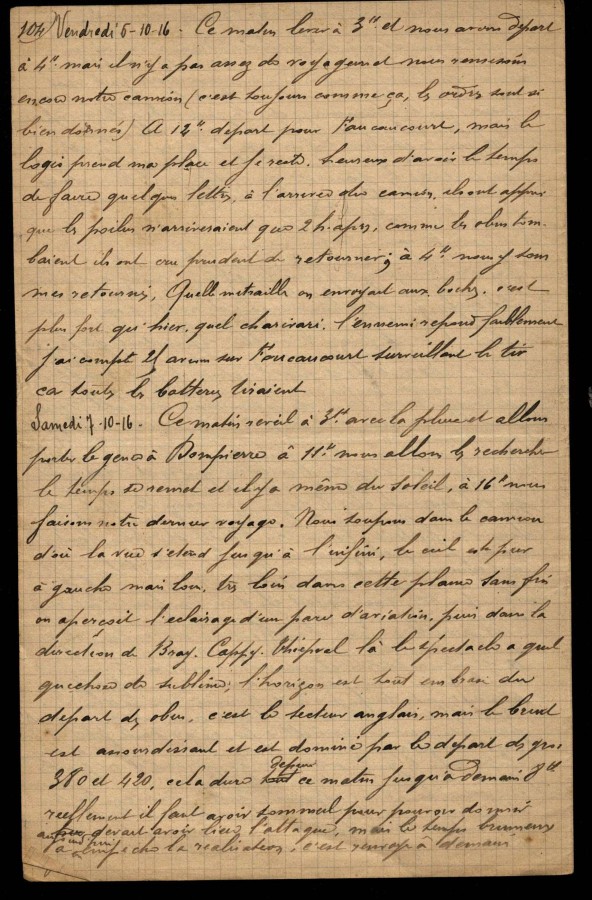 104 Vendredi 6-10-16 - Ce matin lever à 3h. et nous avons départ
à 4h. mais il n'y a pas assez de voyageurs et nous remisons
encore notre camion (c'est toujours comme ça, les ordres sont si
bien donnés) A 12h. départ pour Foucaucourt, mais le
logis prend ma place et je reste. heureux d'avoir le temps
de faire quelques lettres, à l'arrivée des camions, ils ont appris
que les poilus n'arriveraient que 2h. après, comme les obus tom
baient ils ont cru prudent de retourner; à 4h. nous y som
mes retournés, Quelle mitraille on envoyait aux boches. c'est
plus fort qu'hier. quel charivari. l'ennemi repond faiblement
j'ai compté 25 avions sur Foucaucourt surveillant le tir
car toutes les batteries tiraient
Samedi 7-10-16 - Ce matin reveil à 3h. avec la pluie et allons
porter le genie à Dompierre à 11h. nous allons les rechercher
le temps se remet et il y a même du soleil, à 16h nous
faisons notre dernier voyage. Nous soupons dans le camion
d'où la vue s'etend jusqu'à l'infini, le ciel est pur
à gauche mais loin, très loin dans cette plaine sans fin
on aperçoit l'eclairage d'un parc d'aviation, puis dans la
direction de Bray. Cappy. Thiepval là le spectacle a quel
quechose de sublime; l'horizon est tout embrasé du
départ des obus, c'est le secteur anglais, mais le bruit
est assourdissant et est dominé par le départ des gros
380 et 420, cela dure depuis ce matin jusqu'à demain
reellement il faut avoir sommeil pour pouvoir dormir
aujourd'hui devait avoir lieu l'attaque, mais le temps brumeux
a empeché la realisation, c'est renvoyé à demain